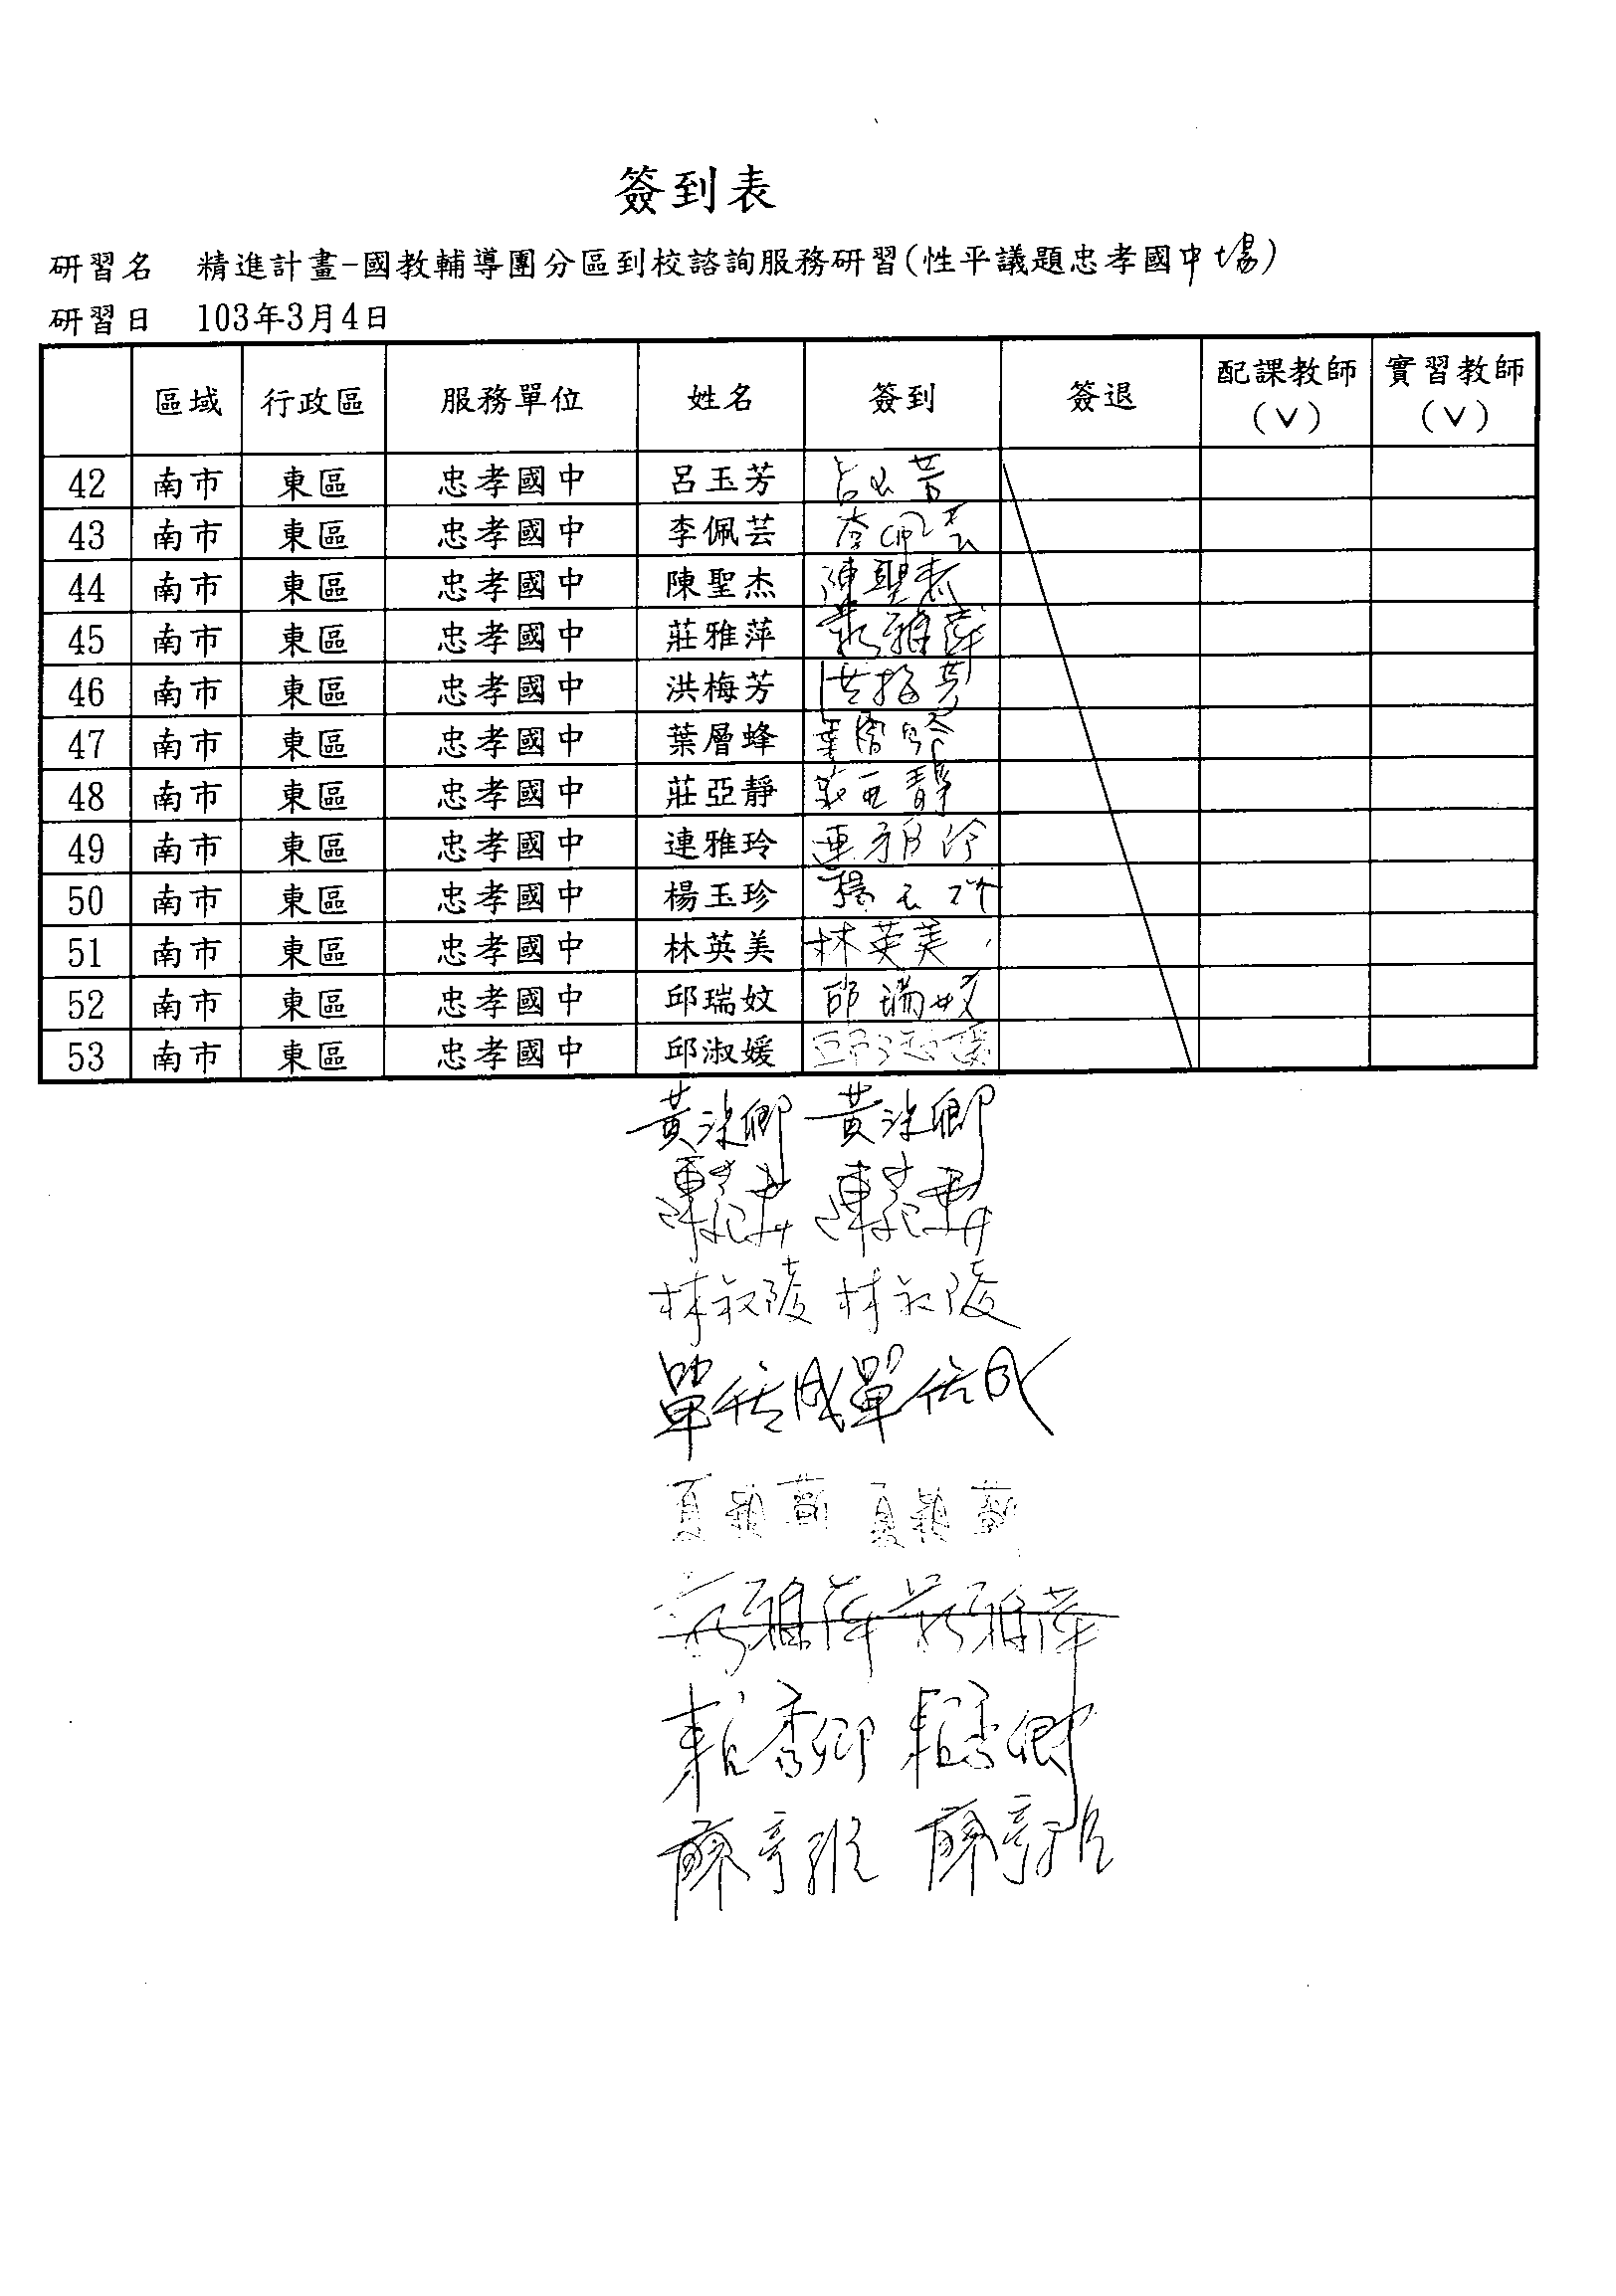 簽到表
研習名 精進計畫-國教輔導團分區到校諮詢服務研習(性平議題忠孝國中場)
研習日 103年3月4日
區域 行政區 服務單位 姓名 簽到 簽退 配課教師(V) 實習教師(V)
42 南市 東區 忠孝國中 呂玉芳 呂玉芳
43 南市 東區 忠孝國中 李佩芸 李佩芸
44 南市 東區 忠孝國中 陳聖杰 陳聖杰
45 南市 東區 忠孝國中 莊雅萍 莊雅萍
46 南市 東區 忠孝國中 洪梅芳 洪梅芳
47 南市 東區 忠孝國中 葉層蜂 葉層蜂
48 南市 東區 忠孝國中 莊亞靜 莊亞靜
49 南市 東區 忠孝國中 連雅玲 連雅玲
50 南市 東區 忠孝國中 楊玉珍 楊玉珍
51 南市 東區 忠孝國中 林英美 林英美
52 南市 東區 忠孝國中 邱瑞妏 邱瑞妏
53 南市 東區 忠孝國中 邱淑媛 邱淑媛
黃 卿 黃 卿
陳 陳
林 陵 林 陵
單 成 單 成
夏 夏
莊雅萍 莊雅萍
賴秀卿 賴秀卿
蘇 蘇